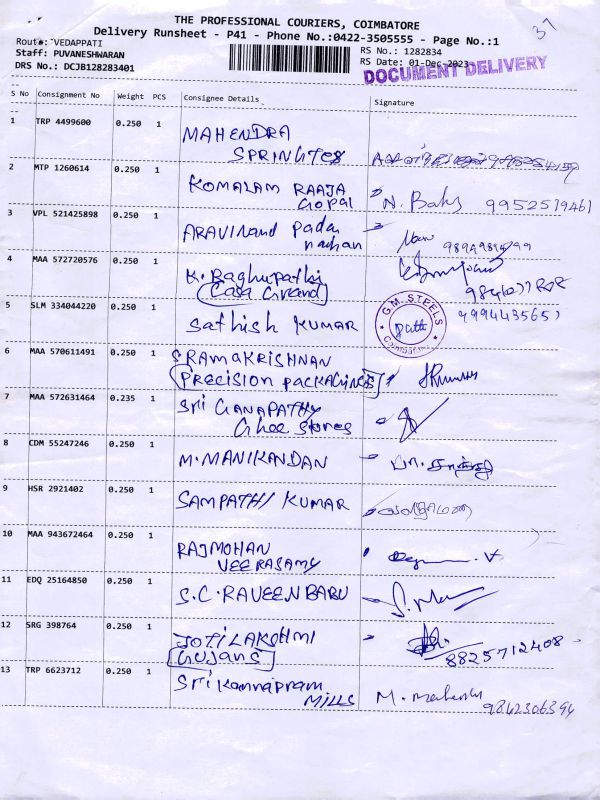 THE PROFESSIONAL COURIERS, COIMBATORE
37
Delivery Runsheet - P41 - Phone No.:0422-3505555 - Page No.:1
Route: VEDAPPATI
RS No.: 1282834
Staff: PUVANESHWARAN
RS Date: 01-Dec-2023
DRS No.: DCJB128283401
DOCUMENT DELIVERY
S No Consignment No Weight PCS Consignee Details Signature
1 TRP 4499600 0.250 1 MAHENDRA
SPRINKTES
2 MTP 1260614 0.250 1 KOMALAM RAAJA
Gopal N. Babu 9952579461
3 VPL 521425898 0.250 1 ARAVINand Pada
nabhan
4 MAA 572720576 0.250 1 K. Raghupathi
Casa Grand
5 SLM 334044220 0.250 1 Sathish KUMAR G.M. STEELS
6 MAA 570611491 0.250 1 SRAMAKRISHNAN
PRECISION PACKAGINGS
7 MAA 572631464 0.235 1 Sri GANAPATHY
Ghee Stores
8 CDM 55247246 0.250 1 M. MANIKANDAN
9 HSR 2921402 0.250 1 SAMPATH KUMAR
10 MAA 943672464 0.250 1 RAJMOHAN
VEERASAMY
11 EDQ 25164850 0.250 1 S.C. RAVEEN BABU
12 SRG 398764 0.250 1 JOTILAKSHMI
Gujans 8825712408
13 TRP 6623712 0.250 1 Sri Kannapram
MILLS M. 9842306394